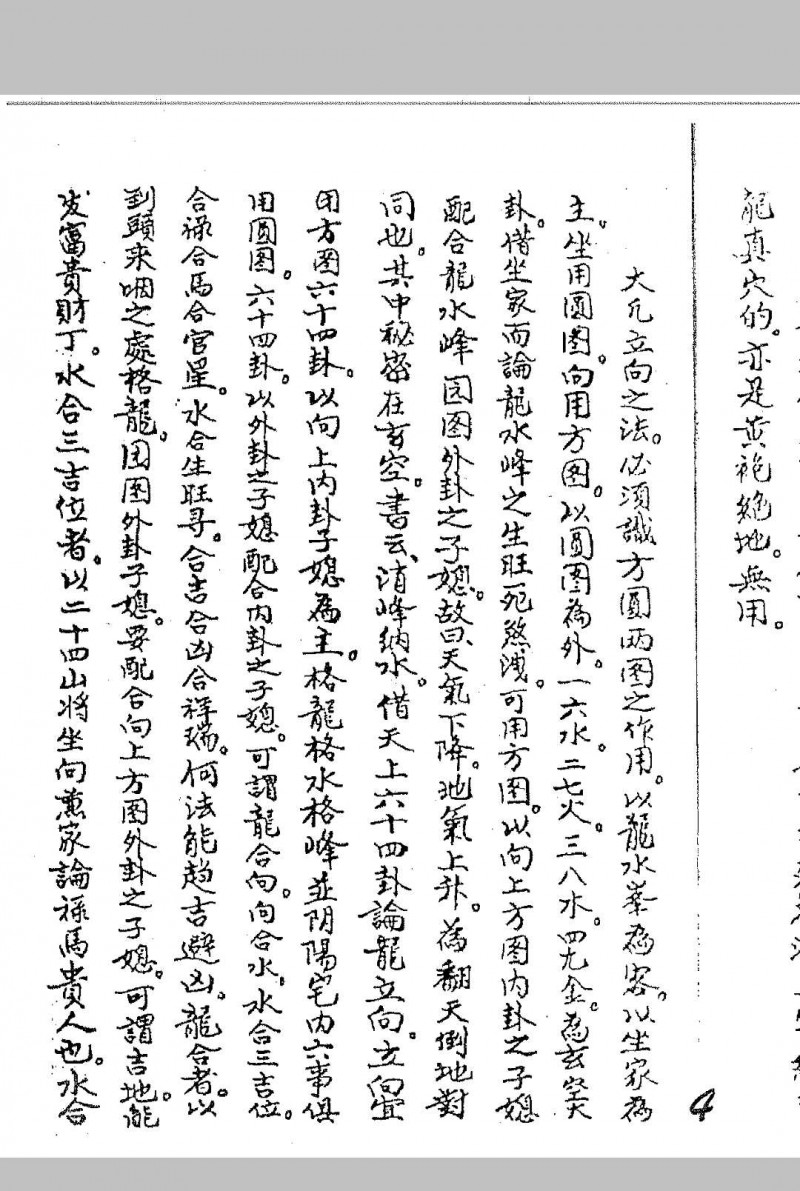 龍真穴的。亦是黃袍絕地。無用。
4
大凡立向之法。必須識方圓兩图之作用。以龍水峯為客。以坐家為
主。坐用圓图。向用方图。以圓图為外。一六水。二七火。三八水。四九金。為玄空大
卦。借坐家而論龍水峰之生旺死煞洩。可用方图。以向上方图內卦之子媳
配合龍水峰园图外卦之子媳。故曰天氣下降。地氣上升。為翻天倒地對
同也。其中秘密在玄空。書云、消峰納水。借天上六十四卦論龍立向。立向宜
用方图六十四卦。以向上內卦子媳為主。格龍格水格峰並阴陽宅內六事俱
用圓图。六十四卦。以外卦之子媳配合內卦之子媳。可謂龍合向。向合水。水合三吉位。
合祿合馬合官星。水合生旺寻。合吉合凶合祥瑞。何法能趋吉避凶。龍合者。以
到頭來咽之處格龍。园图外卦子媳。要配合向上方图外卦之子媳。可謂吉地。能
发富貴財丁。水合三吉位者。以二十四山将坐向蔥家論祿馬貴人也。水合